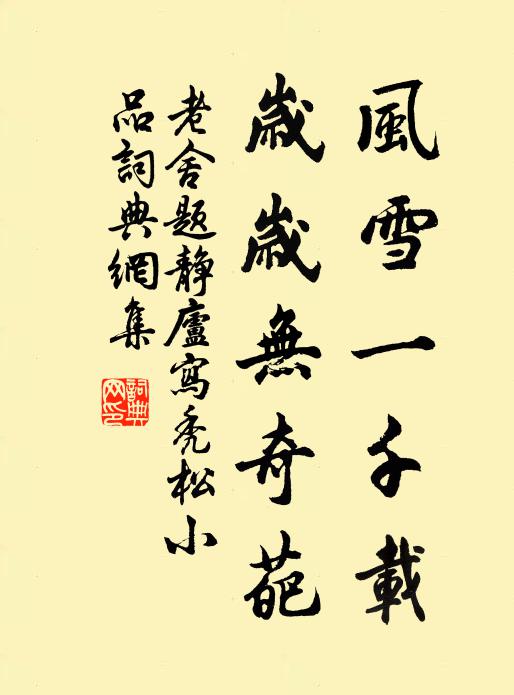 風雪一千載
歲歲無奇葩
老舍題靜廬寫禿松小
品詞典網集
詞典
网印